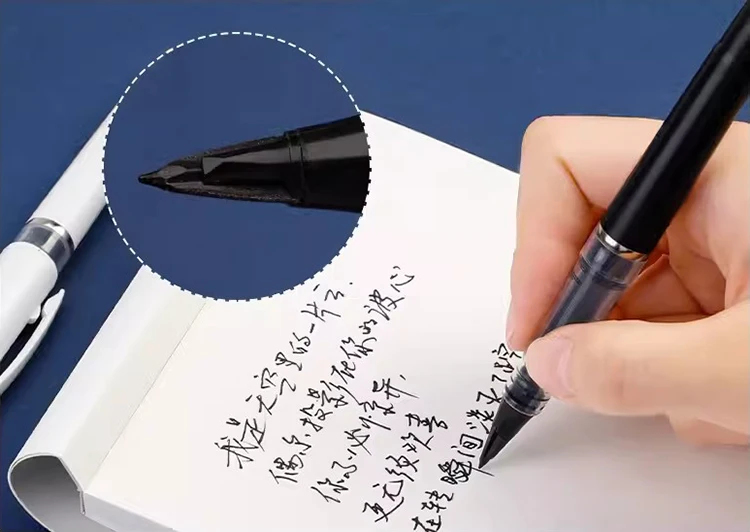 我是天空里的一片云.
偶尔投影在你的波心
你不必惊异,
更无须欢喜
在转瞬间消灭了踪